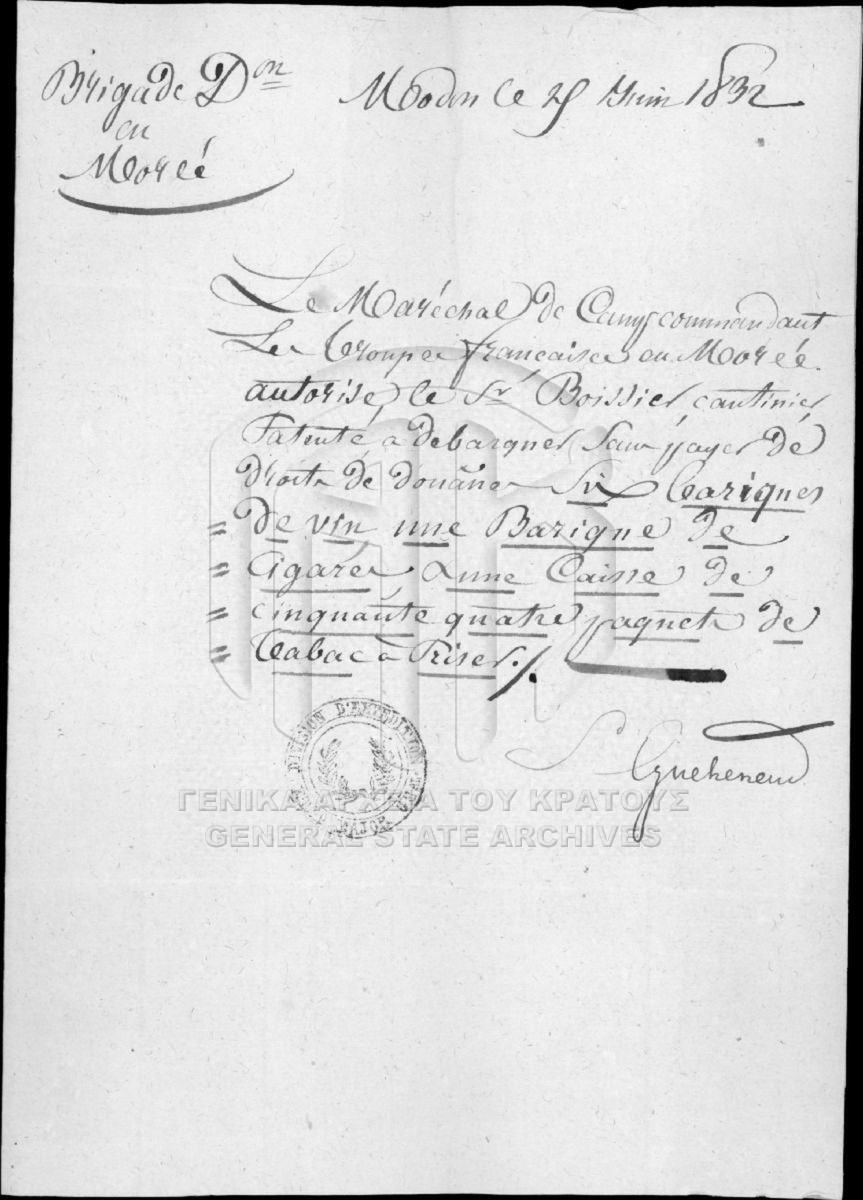 Brigade Don
en
Morée
Modon le 25 Juin 1832
Le Maréchal de Camp commandant
Les Troupes françaises en Morée
autorise le Sr Boissier cantinier
Patenté à debarquer sans payer de
droits de douanes Six Bariques
= De vin une Barique de
= Cigares & une Caisse de
= cinquante quatre paquets de
= Tabac à Priser./.
DIVISION D'EXPEDITION
MAJOR
ΓΕΝΙΚΑ ΑΡΧΕΙΑ ΤΟΥ ΚΡΑΤΟΥΣ
GENERAL STATE ARCHIVES